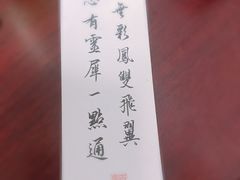 無彩鳳雙飛翼
有靈犀一點通